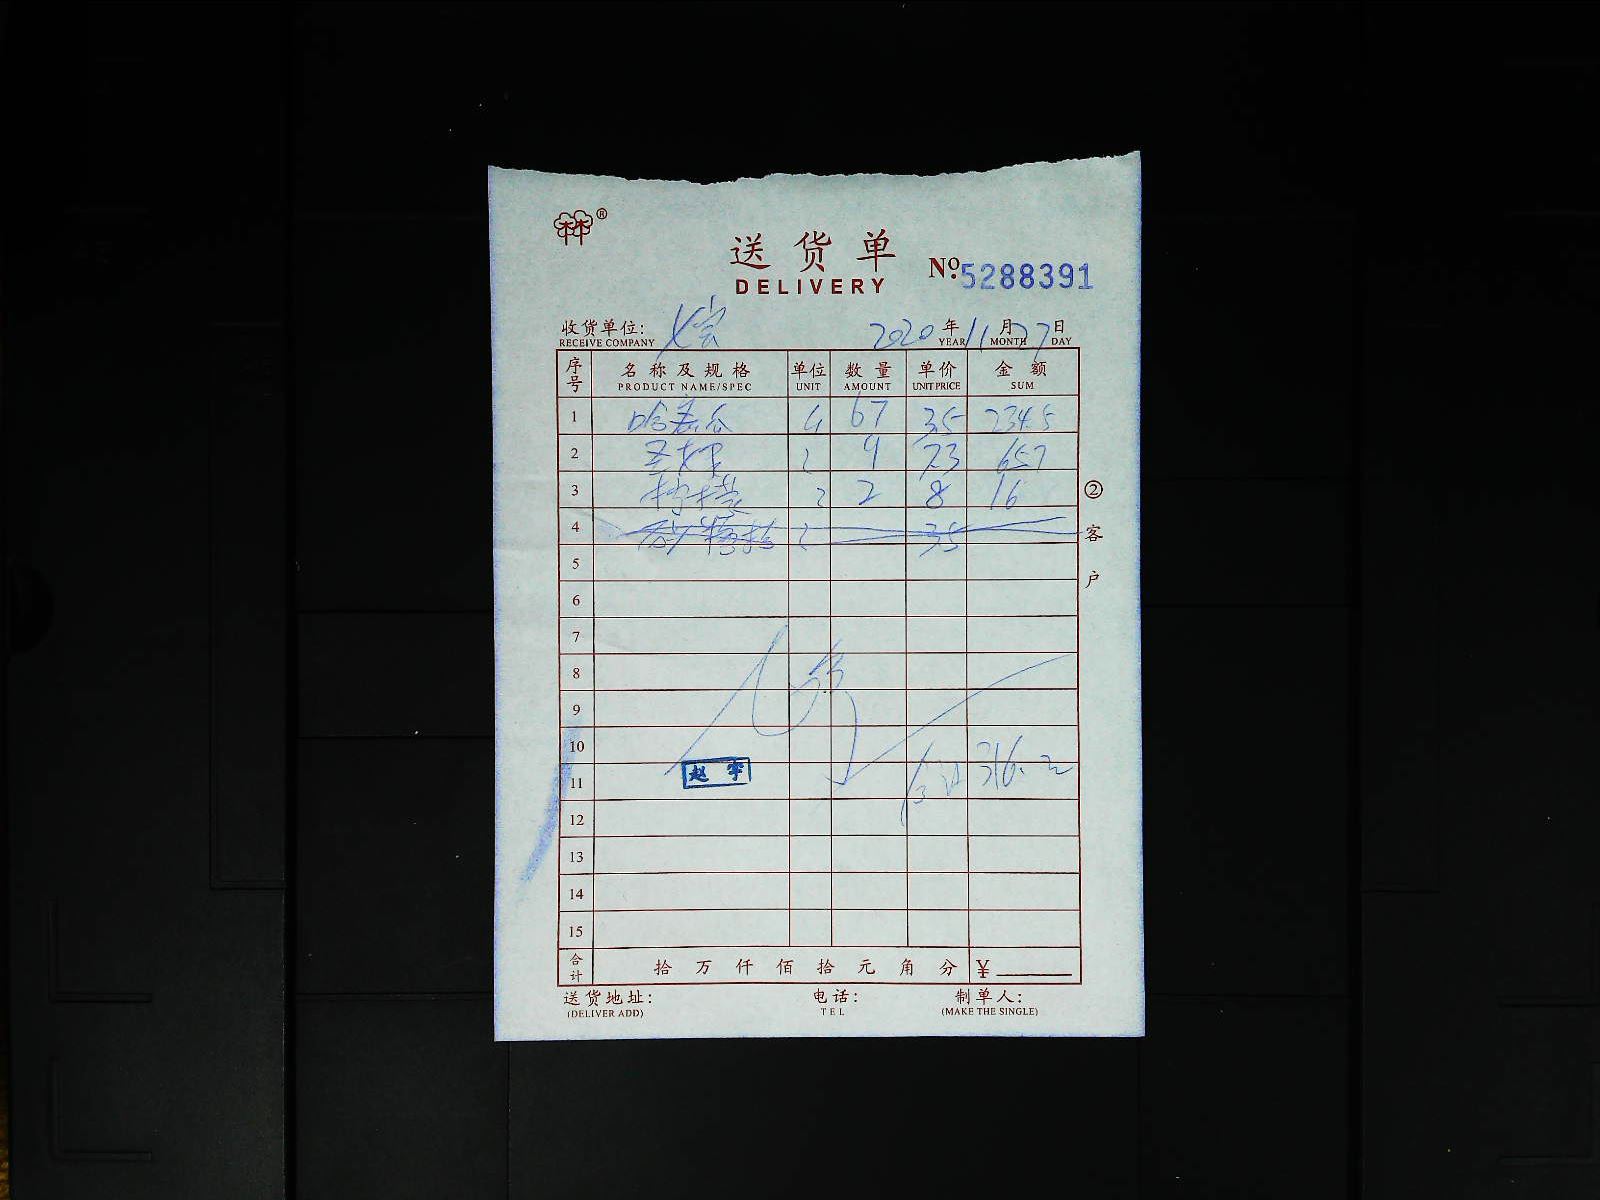 林®
送货单
DELIVERY
No. 5288391
收货单位: 2020年11月27日
RECEIVE COMPANY YEAR MONTH DAY
序号 名称及规格 单位 数量 单价 金额
PRODUCT NAME/SPEC UNIT AMOUNT UNIT PRICE SUM
1 哈密瓜 斤 67 3.5 234.5
2 9 7.3 65.7
3 柠檬 2 8 16
4 砂糖桔 3.5
5
6
7
8
9
10
11 赵宇 合计 316.2
12
13
14
15
合计 拾 万 仟 佰 拾 元 角 分 ¥
送货地址: 电话: 制单人:
(DELIVER ADD) TEL (MAKE THE SINGLE)
②客户